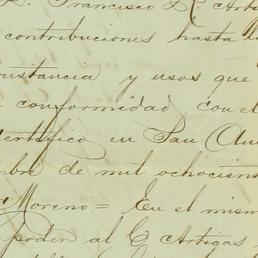 D. Francisco R. Arti
contribuciones hasta la
unstancia y usos que
conformidad con el
Certifico en San Au
bre de mil ochocient
Moreno = En el mism
poder al C Artigas